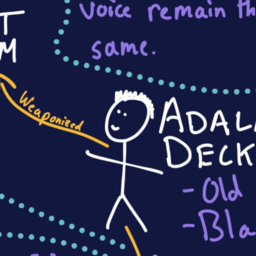 voice remain th
same.
T
M
Weaponized
ADALA
DECK
- Old
- Bla